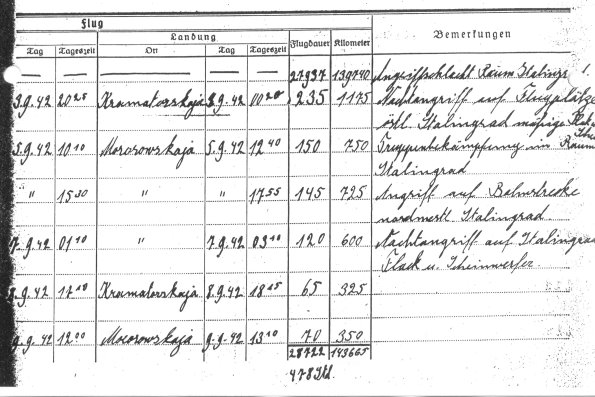 Flug
Landung
Tag Tageszeit Ort Tag Tageszeit Flugdauer Kilometer Bemerkungen
— — — — — 27937 139740 Angriffschlacht Raum Stalingr. 1.
3.9.42 20 25 Kramatorskaja 3.9.42 00 20 235 1175 Nachtangriff auf Flugplätze
östl. Stalingrad mäßige Flak
5.9.42 10 10 Morosowskaja 5.9.42 12 40 150 750 Truppenbekämpfung im Raum
Stalingrad
" 15 30 " " 17 55 145 725 Angriff auf Bahnstrecke
nordwestl Stalingrad
7.9.42 01 10 " 7.9.42 03 10 120 600 Nachtangriff auf Stalingrad
Flack u. Scheinwerfer
8.9.42 17 10 Kramatorskaja 8.9.42 18 15 65 325
9.9.42 12 00 Morosowskaja 9.9.42 13 10 70 350
28722 143665
478 Std.